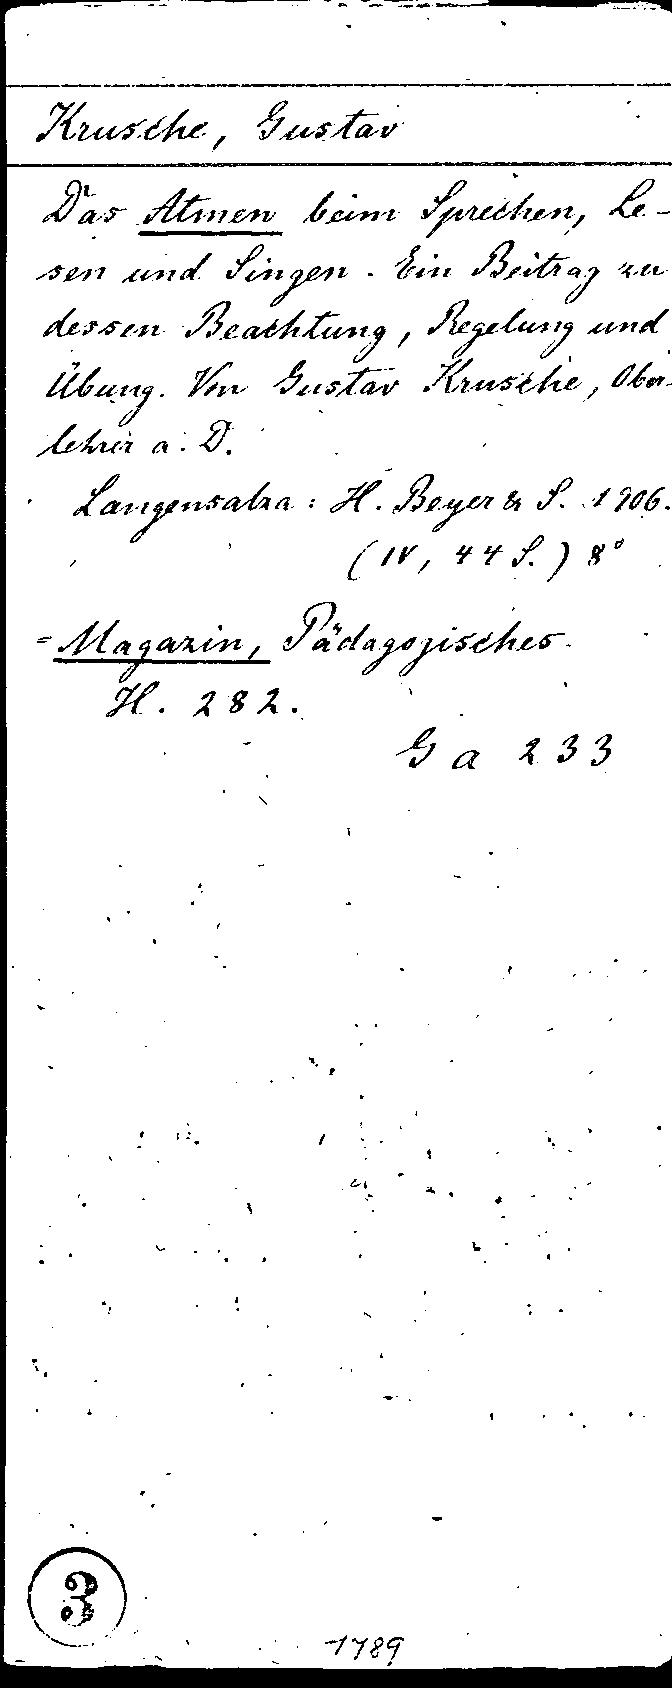 Krusche, Gustav
Das Atmen beim Sprechen, Le-
sen und Singen. Ein Beitrag zu
dessen Beachtung, Regelung und
Übung. Von Gustav Krusche, Ober-
lehrer a. D.
Langensalza: H. Beyer & S. 1906.
(IV, 44 S.) 8°
= Magazin, Pädagogisches
H. 282.
Ga 233
3
1789